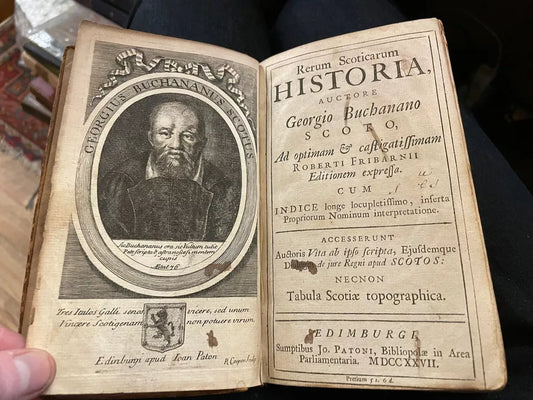 GEORGIUS BUCHANANUS SCOTUS.
Sic Buchananus ora, sic vultum tulit
Pete scripta & astra, nosse si mentem
cupis
Ætat 76
Tres Italos Galli senos vicere, sed unum
Vincere Scotigenam non potuere virum.
Edinburgi apud Ioan Paton
R. Cooper Sculp
Rerum Scoticarum
HISTORIA,
AUCTORE
Georgio Buchanano
SCOTO,
Ad optimam & castigatissimam
ROBERTI FRIBARNII
Editionem expressa.
CUM
INDICE longe locupletissimo, inserta
Propriorum Nominum interpretatione.
ACCESSERUNT
Auctoris Vita ab ipso scripta, Ejusdemque
de jure Regni apud SCOTOS:
NECNON
Tabula Scotiæ topographica.
EDIMBURGI
Sumptibus Jo. PATONI, Bibliopolæ in Area
Parliamentaria. MDCCXXVII.
Pretium 5 s. 6 d.